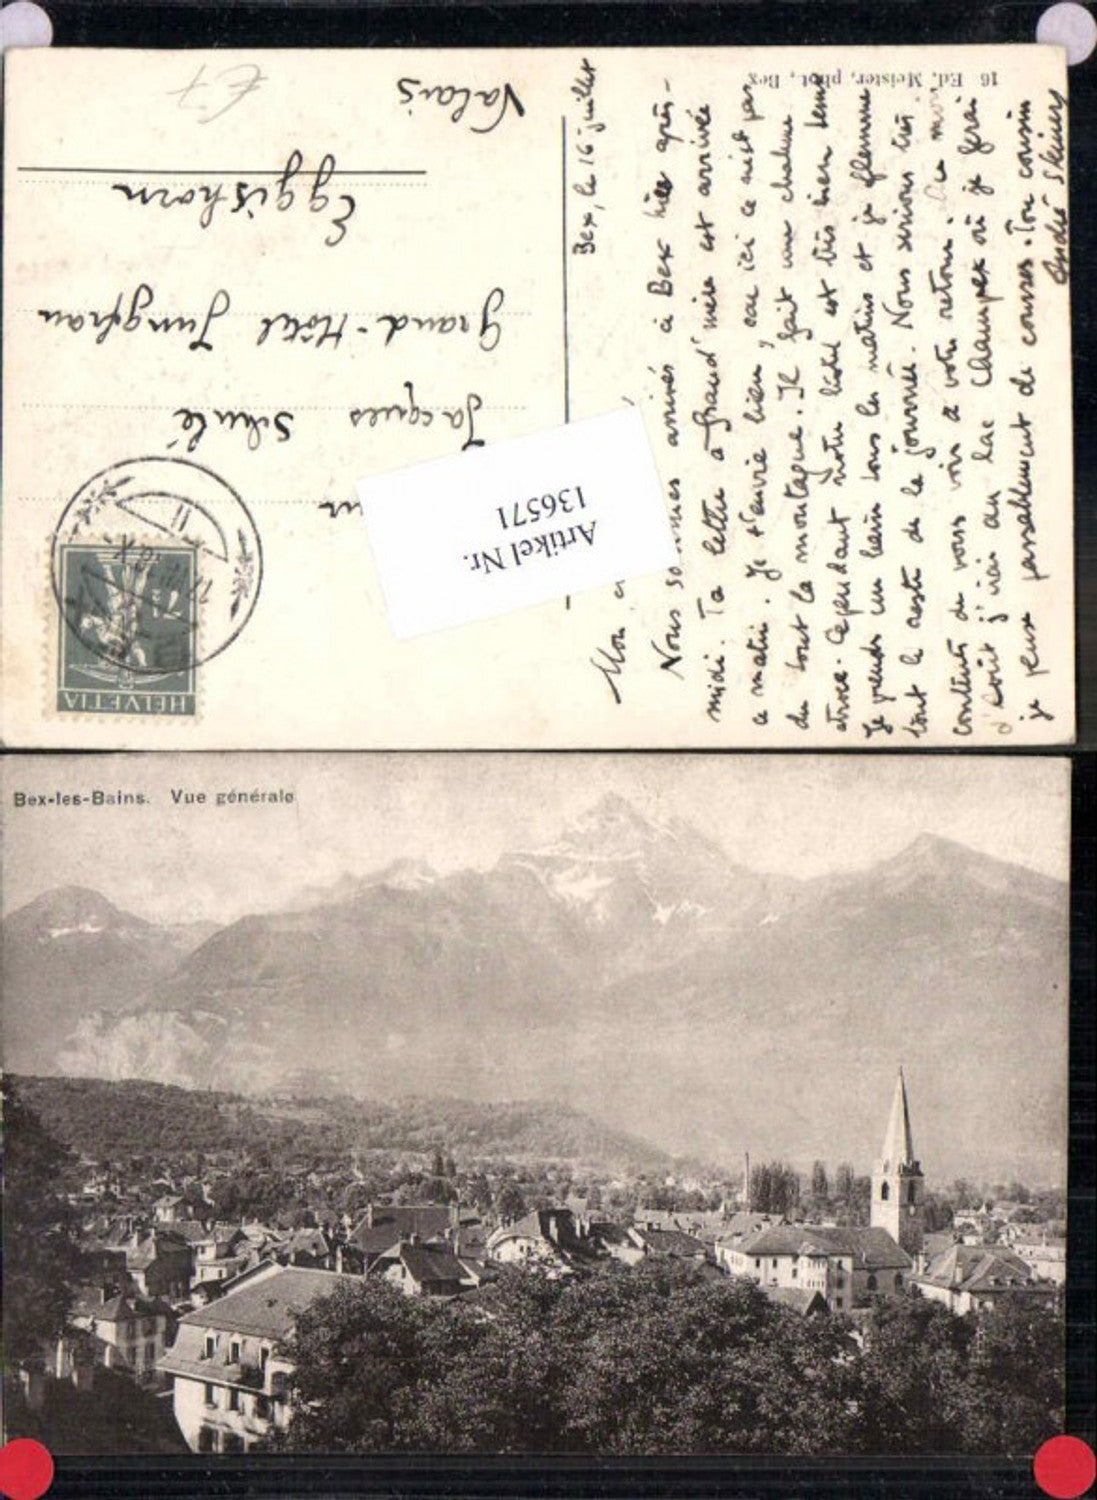 16 Ed. Meister, phot., Bex
Bex, le 16 juillet
Mon
Nous sommes arrivés à Bex hier après-
midi. Ta lettre à Grand'mère est arrivée
ce matin. Je t'envie bien, car ici ce n'est pas
du tout la montagne. Il fait une chaleur
atroce. Cependant notre hôtel est très bien tenu
Je prends un bain tous les matins et je flemme
tout le reste de la journée. Nous serions très
contents de vous voir à votre retour. Au mois
d'août j'irai au lac Champex où je ferai
je pense passablement de courses. Ton cousin
André
Jacques
Grand-Hôtel Jungfrau
Eggishorn
Valais
HELVETIA
7½
Artikel Nr.
136571
Bex-les-Bains. Vue générale